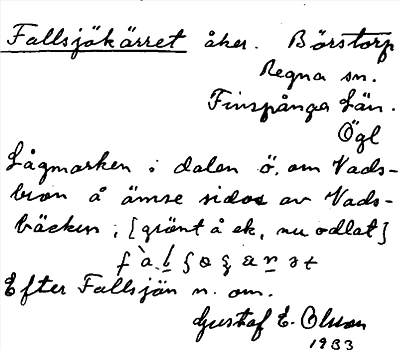 Fallsjökärret åker. Börstorp
Regna sn.
Finspånga Län.
Ögl
Lågmarken i dalen ö. om Vads-
bron å ömse sidor av Vads-
bäcken, [grönt å ek, nu odlat]
Efter Fallsjön n. om.
Gustaf E. Olson
1933